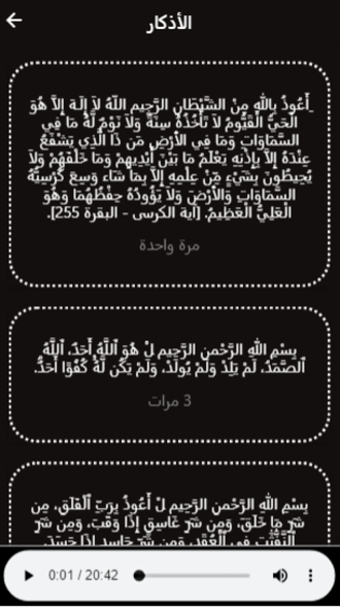 الأذكار
أَعُوذُ بِاللهِ مِنْ الشَّيْطَانِ الرَّجِيمِ اللّهُ لاَ إِلَـهَ إِلاَّ هُوَ
الْحَيُّ الْقَيُّومُ لاَ تَأْخُذُهُ سِنَةٌ وَلاَ نَوْمٌ لَّهُ مَا فِي
السَّمَاوَاتِ وَمَا فِي الأَرْضِ مَن ذَا الَّذِي يَشْفَعُ
عِنْدَهُ إِلاَّ بِإِذْنِهِ يَعْلَمُ مَا بَيْنَ أَيْدِيهِمْ وَمَا خَلْفَهُمْ وَلاَ
يُحِيطُونَ بِشَيْءٍ مِّنْ عِلْمِهِ إِلاَّ بِمَا شَاء وَسِعَ كُرْسِيُّهُ
السَّمَاوَاتِ وَالأَرْضَ وَلاَ يَؤُودُهُ حِفْظُهُمَا وَهُوَ
الْعَلِيُّ الْعَظِيمُ. [آية الكرسى - البقرة 255].
مرة واحدة
بِسْمِ اللهِ الرَّحْمنِ الرَّحِيم لْ هُوَ ٱللَّهُ أَحَدٌ، ٱللَّهُ
ٱلصَّمَدُ، لَمْ يَلِدْ وَلَمْ يُولَدْ، وَلَمْ يَكُن لَّهُ كُفُوًا أَحَدٌۢ.
3 مرات
بِسْمِ اللهِ الرَّحْمنِ الرَّحِيم لْ أَعُوذُ بِرَبِّ ٱلْفَلَقِ، مِن
شَرِّ مَا خَلَقَ، وَمِن شَرِّ غَاسِقٍ إِذَا وَقَبَ، وَمِن شَرِّ
ٱلنَّفَّٰثَٰتِ فِى ٱلْعُقَدِ، وَمِن شَرِّ حَاسِدٍ إِذَا حَسَدَ.
0:01 / 20:42